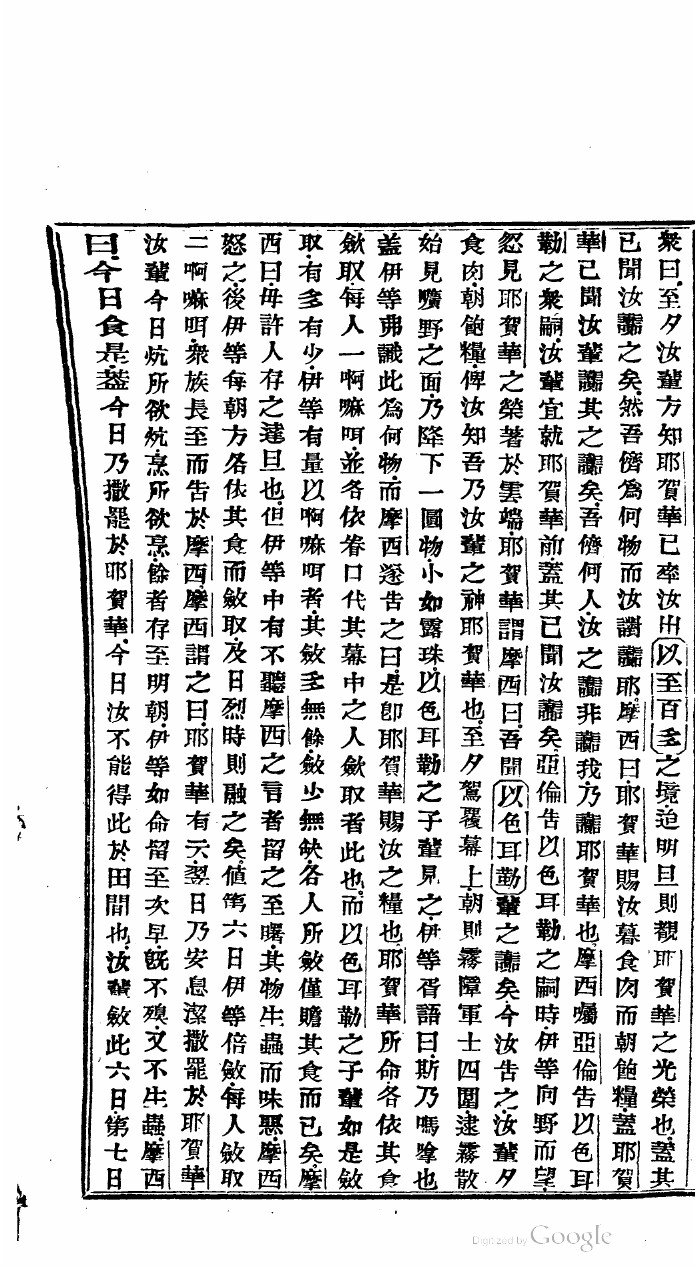 衆曰.至夕汝輩方知耶賀華已率汝出以至百多之境.迨明旦則覩耶賀華之光榮也.蓋其
已聞汝讟之矣.然吾儕為何物而汝謭讟耶.摩西曰.耶賀華賜汝暮食肉而朝飽糧.蓋耶賀
華已聞汝輩讟其之讟矣.吾儕何人.汝之讟非讟我.乃讟耶賀華也.摩西囑亞倫告以色耳
勒之衆嗣.汝輩宜就耶賀華前.蓋其已聞汝讟矣.亞倫告以色耳勒之嗣時.伊等向野而望.
忽見耶賀華之榮著於雲端.耶賀華謂摩西曰.吾聞以色耳勒輩之讟矣.今汝告之.汝輩夕
食肉.朝飽糧.俾汝知吾乃汝輩之神耶賀華也.至夕駕覆幕上.朝則霧障軍士四圍.逮霧散
始見曠野之面.乃降下一圓物小如露珠.以色耳勒之子輩見之.伊等胥語曰.斯乃嗎嗱也
蓋伊等弗識此為何物.而摩西遂告之曰.是卽耶賀華賜汝之糧也.耶賀華所命各依其食
斂取.每人一啊嘛呬.並各依眷口代其幕中之人斂取者此也.而以色耳勒之子輩如是斂
取.有多有少.伊等有量以啊嘛呬者.其斂多無餘.斂少無缺.各人所斂僅贍其食而已矣.摩
西曰.毋許人存之達旦也.但伊等中有不聽摩西之言者留之至曙.其物生蟲而味惡.摩西
怒之.後伊等每朝方各依其食而斂取.及日烈時則融之矣.値第六日伊等倍斂.每人斂取
二啊嘛呬.衆族長至而告於摩西.摩西謂之曰.耶賀華有云.翌日乃安息潔撒罷於耶賀華
汝輩今日炕所欲炕.烹所欲烹.餘者存至明朝.伊等如命留至次早.旣不殠.又不生蟲.摩西
曰.今日食是.蓋今日乃撒罷於耶賀華.今日汝不能得此於田間也.汝輩斂此六日.第七日
Digitized by Google